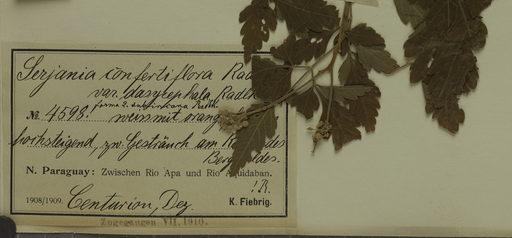 Serjania confertiflora Radlk
var. dasycephala Radlk
forma 2.
No. 4598. weiss mit orange
hochsteigend, zw. Gesträuch am des
Bergwaldes.
N. Paraguay: Zwischen Rio Apa und Rio Aquidaban.
!R.
1908/1909. Centurion, Dez. K. Fiebrig.
Zugegangen VII. 1910.